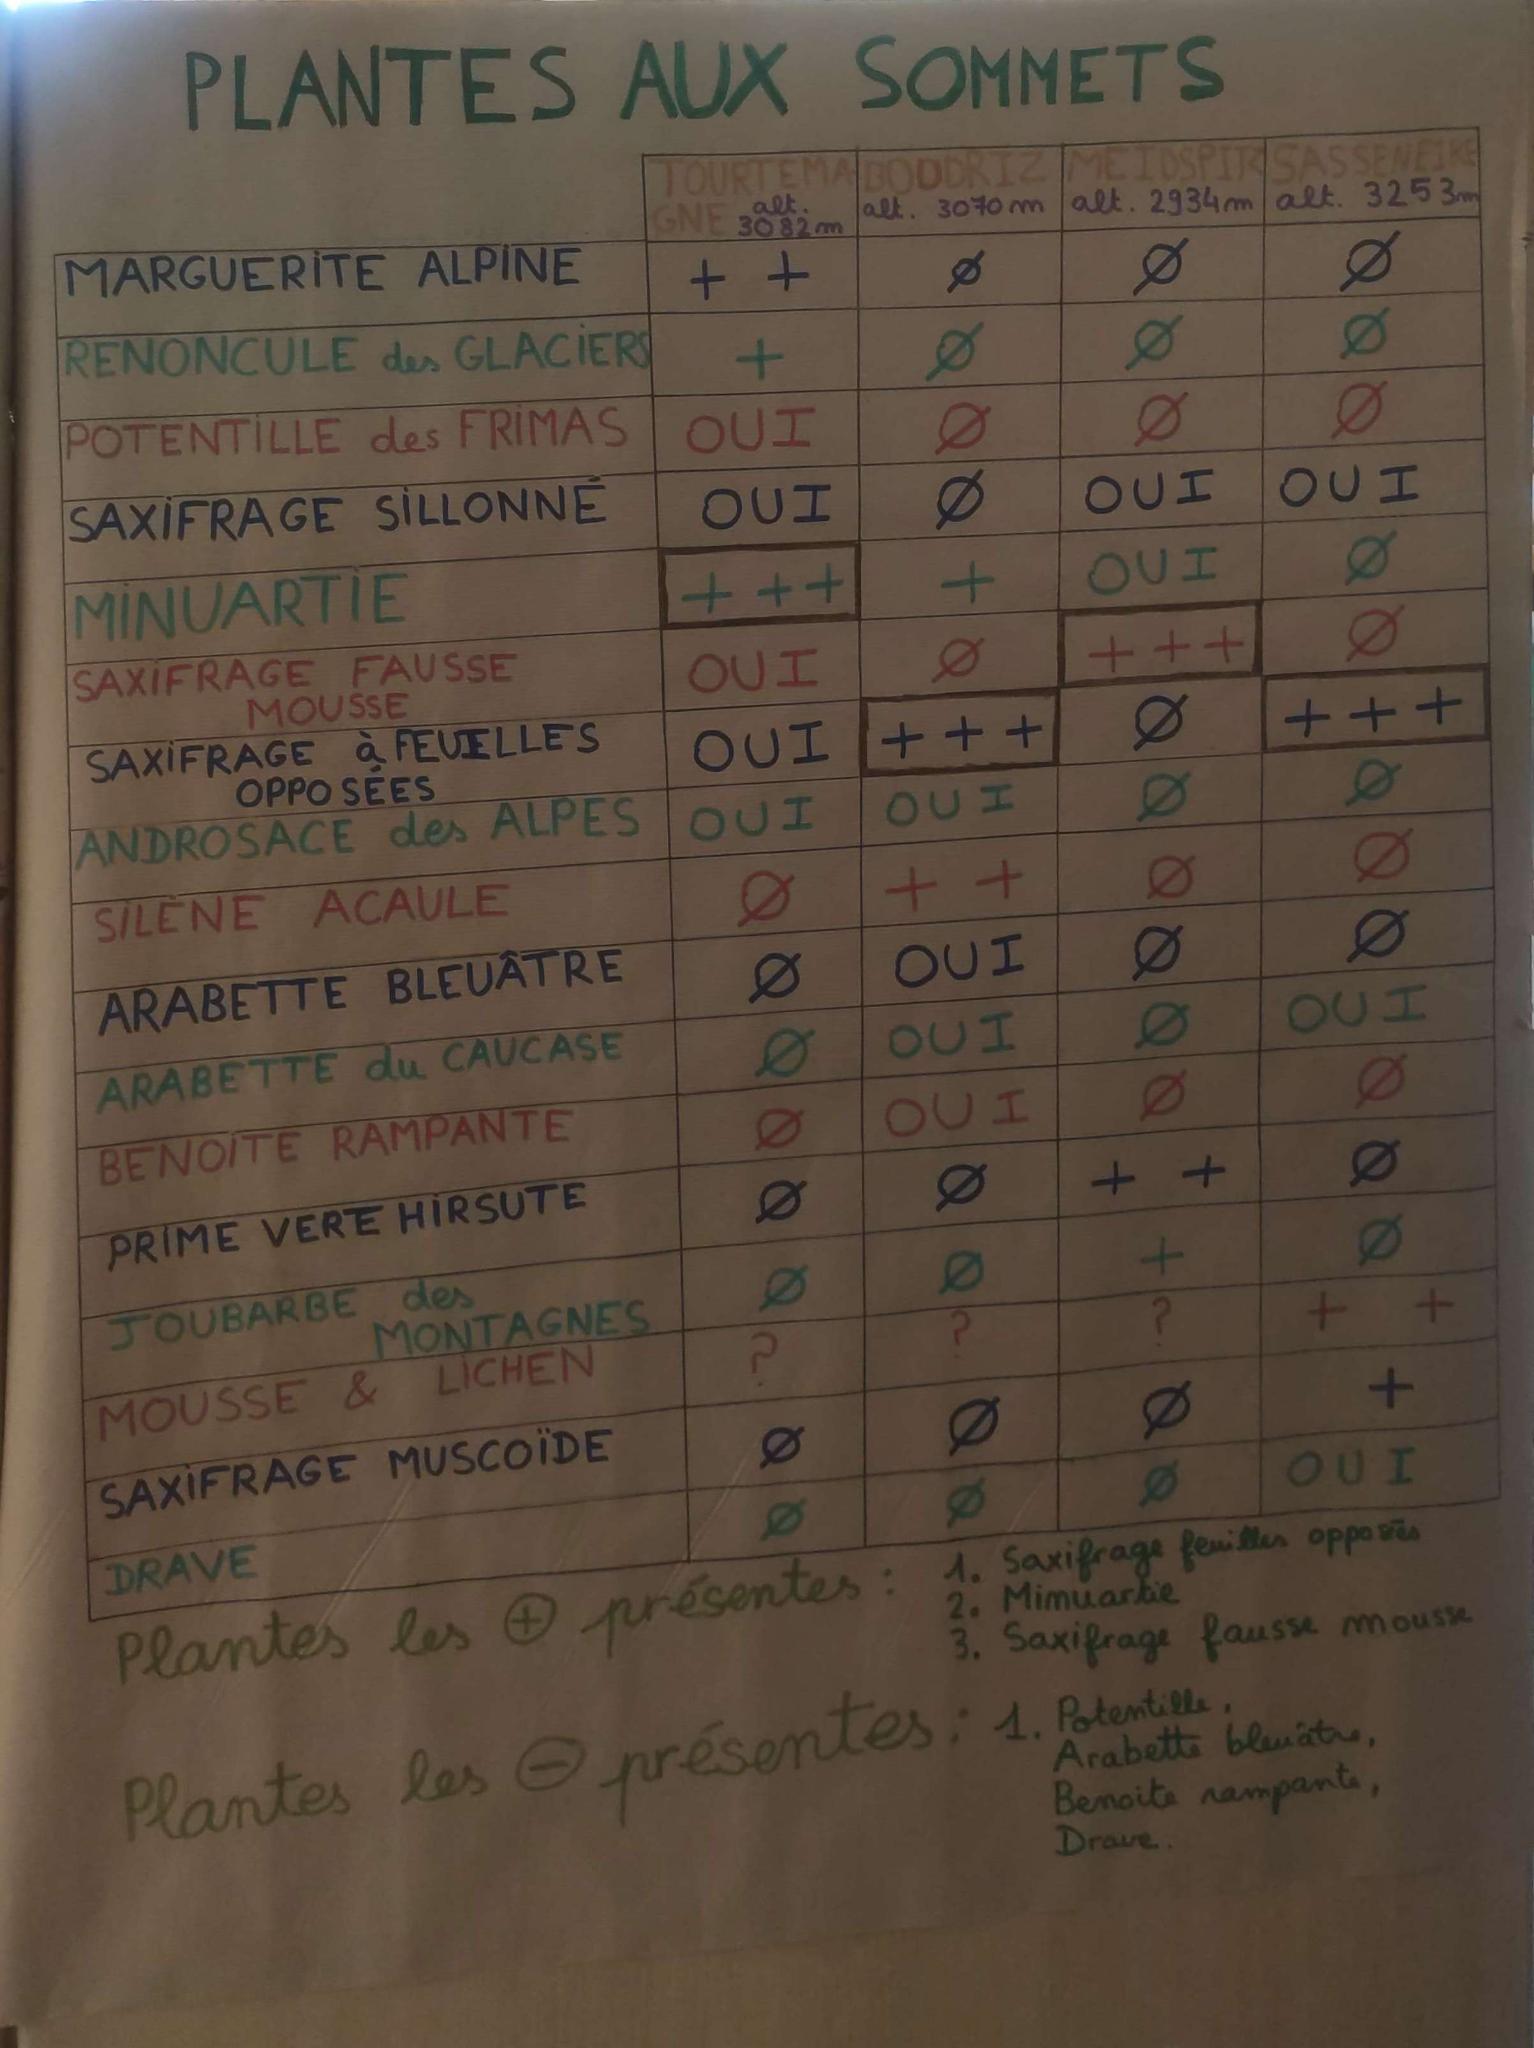 PLANTES AUX SOMMETS
TOURTEMA BODDRIZ MEIDSPIR SASSENEIRE
GNE alt. 3082m alt. 3070m alt. 2934m alt. 3253m
MARGUERITE ALPINE + + Ø Ø Ø
RENONCULE des GLACIERS + Ø Ø Ø
POTENTILLE des FRIMAS OUI Ø Ø Ø
SAXIFRAGE SILLONNÉ OUI Ø OUI OUI
MINUARTIE + + + + OUI Ø
SAXIFRAGE FAUSSE MOUSSE OUI Ø + + + Ø
SAXIFRAGE à FEUILLES OPPOSÉES OUI + + + Ø + + +
ANDROSACE des ALPES OUI OUI Ø Ø
SILÈNE ACAULE Ø + + Ø Ø
ARABETTE BLEUÂTRE Ø OUI Ø Ø
ARABETTE du CAUCASE Ø OUI Ø OUI
BENOITE RAMPANTE Ø OUI Ø Ø
PRIME VERE HIRSUTE Ø Ø + + Ø
JOUBARBE des MONTAGNES Ø Ø + Ø
MOUSSE & LICHEN ? ? ? + +
SAXIFRAGE MUSCOÏDE Ø Ø Ø +
DRAVE Ø Ø Ø OUI
Plantes les ⊕ présentes : 1. Saxifrage feuilles opposés
2. Minuartie
3. Saxifrage fausse mousse
Plantes les ⊖ présentes : 1. Potentille,
Arabette bleuâtre,
Benoite rampante,
Drave.